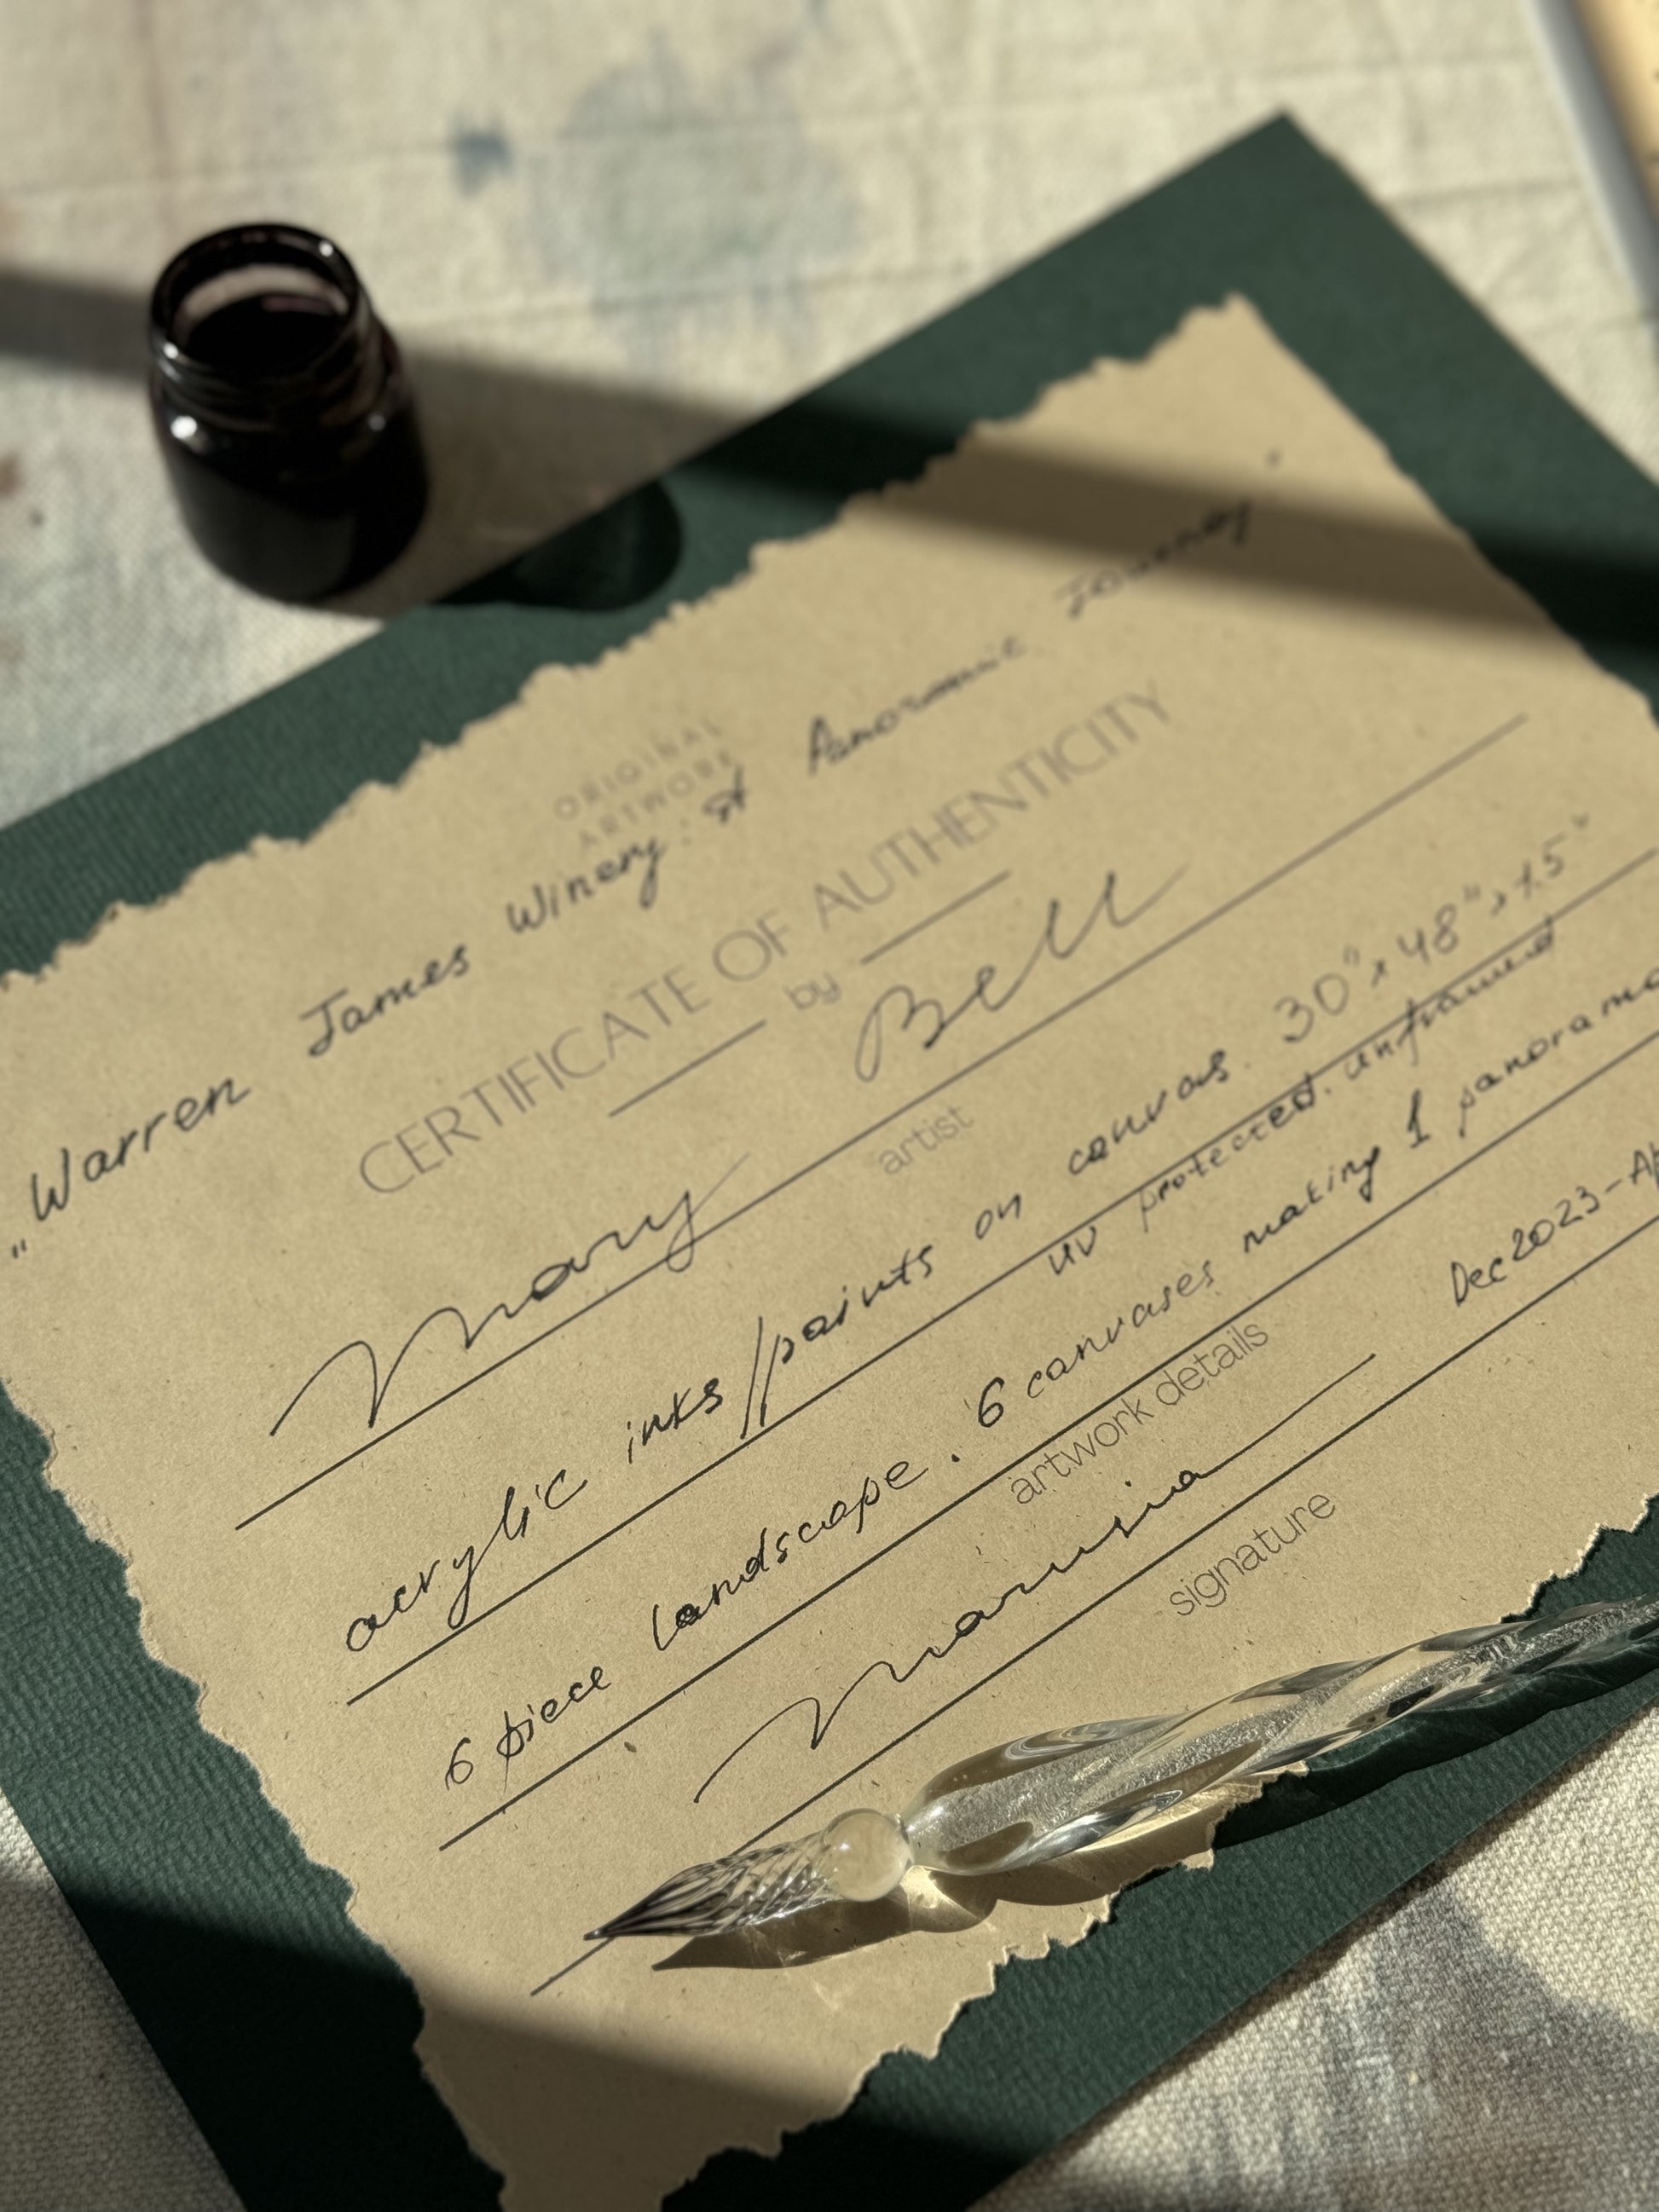 ORIGINAL
ARTWORK
"Warren James Winery. A Panoramic Journey"
CERTIFICATE OF AUTHENTICITY
by
Mary Bell
artist
acrylic inks/paints on canvas. 30"x48"x1.5"
UV protected. unframed
6 piece landscape. 6 canvases making 1 panorama
artwork details
Dec2023-Ap
signature